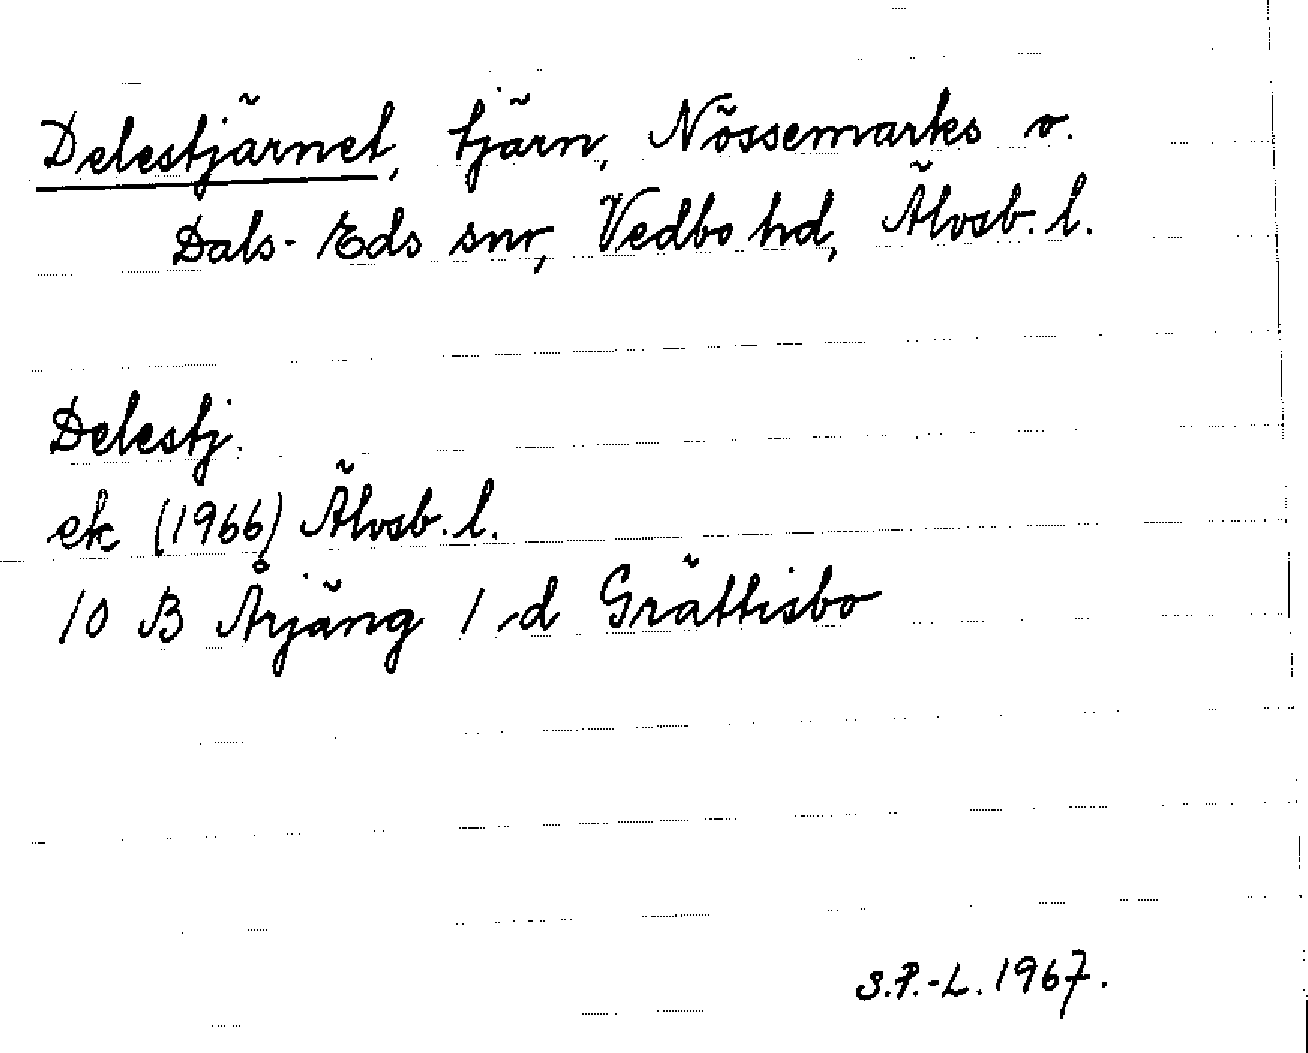 Delestjärnet, tjärn, Nössemarks o.
Dals-Eds snr, Vedbo hd, Älvsb. l.
Delestj.
ek (1966) Älvsb. l.
10 B Årjäng 1 d Grättisbo
S.P.-L. 1967.